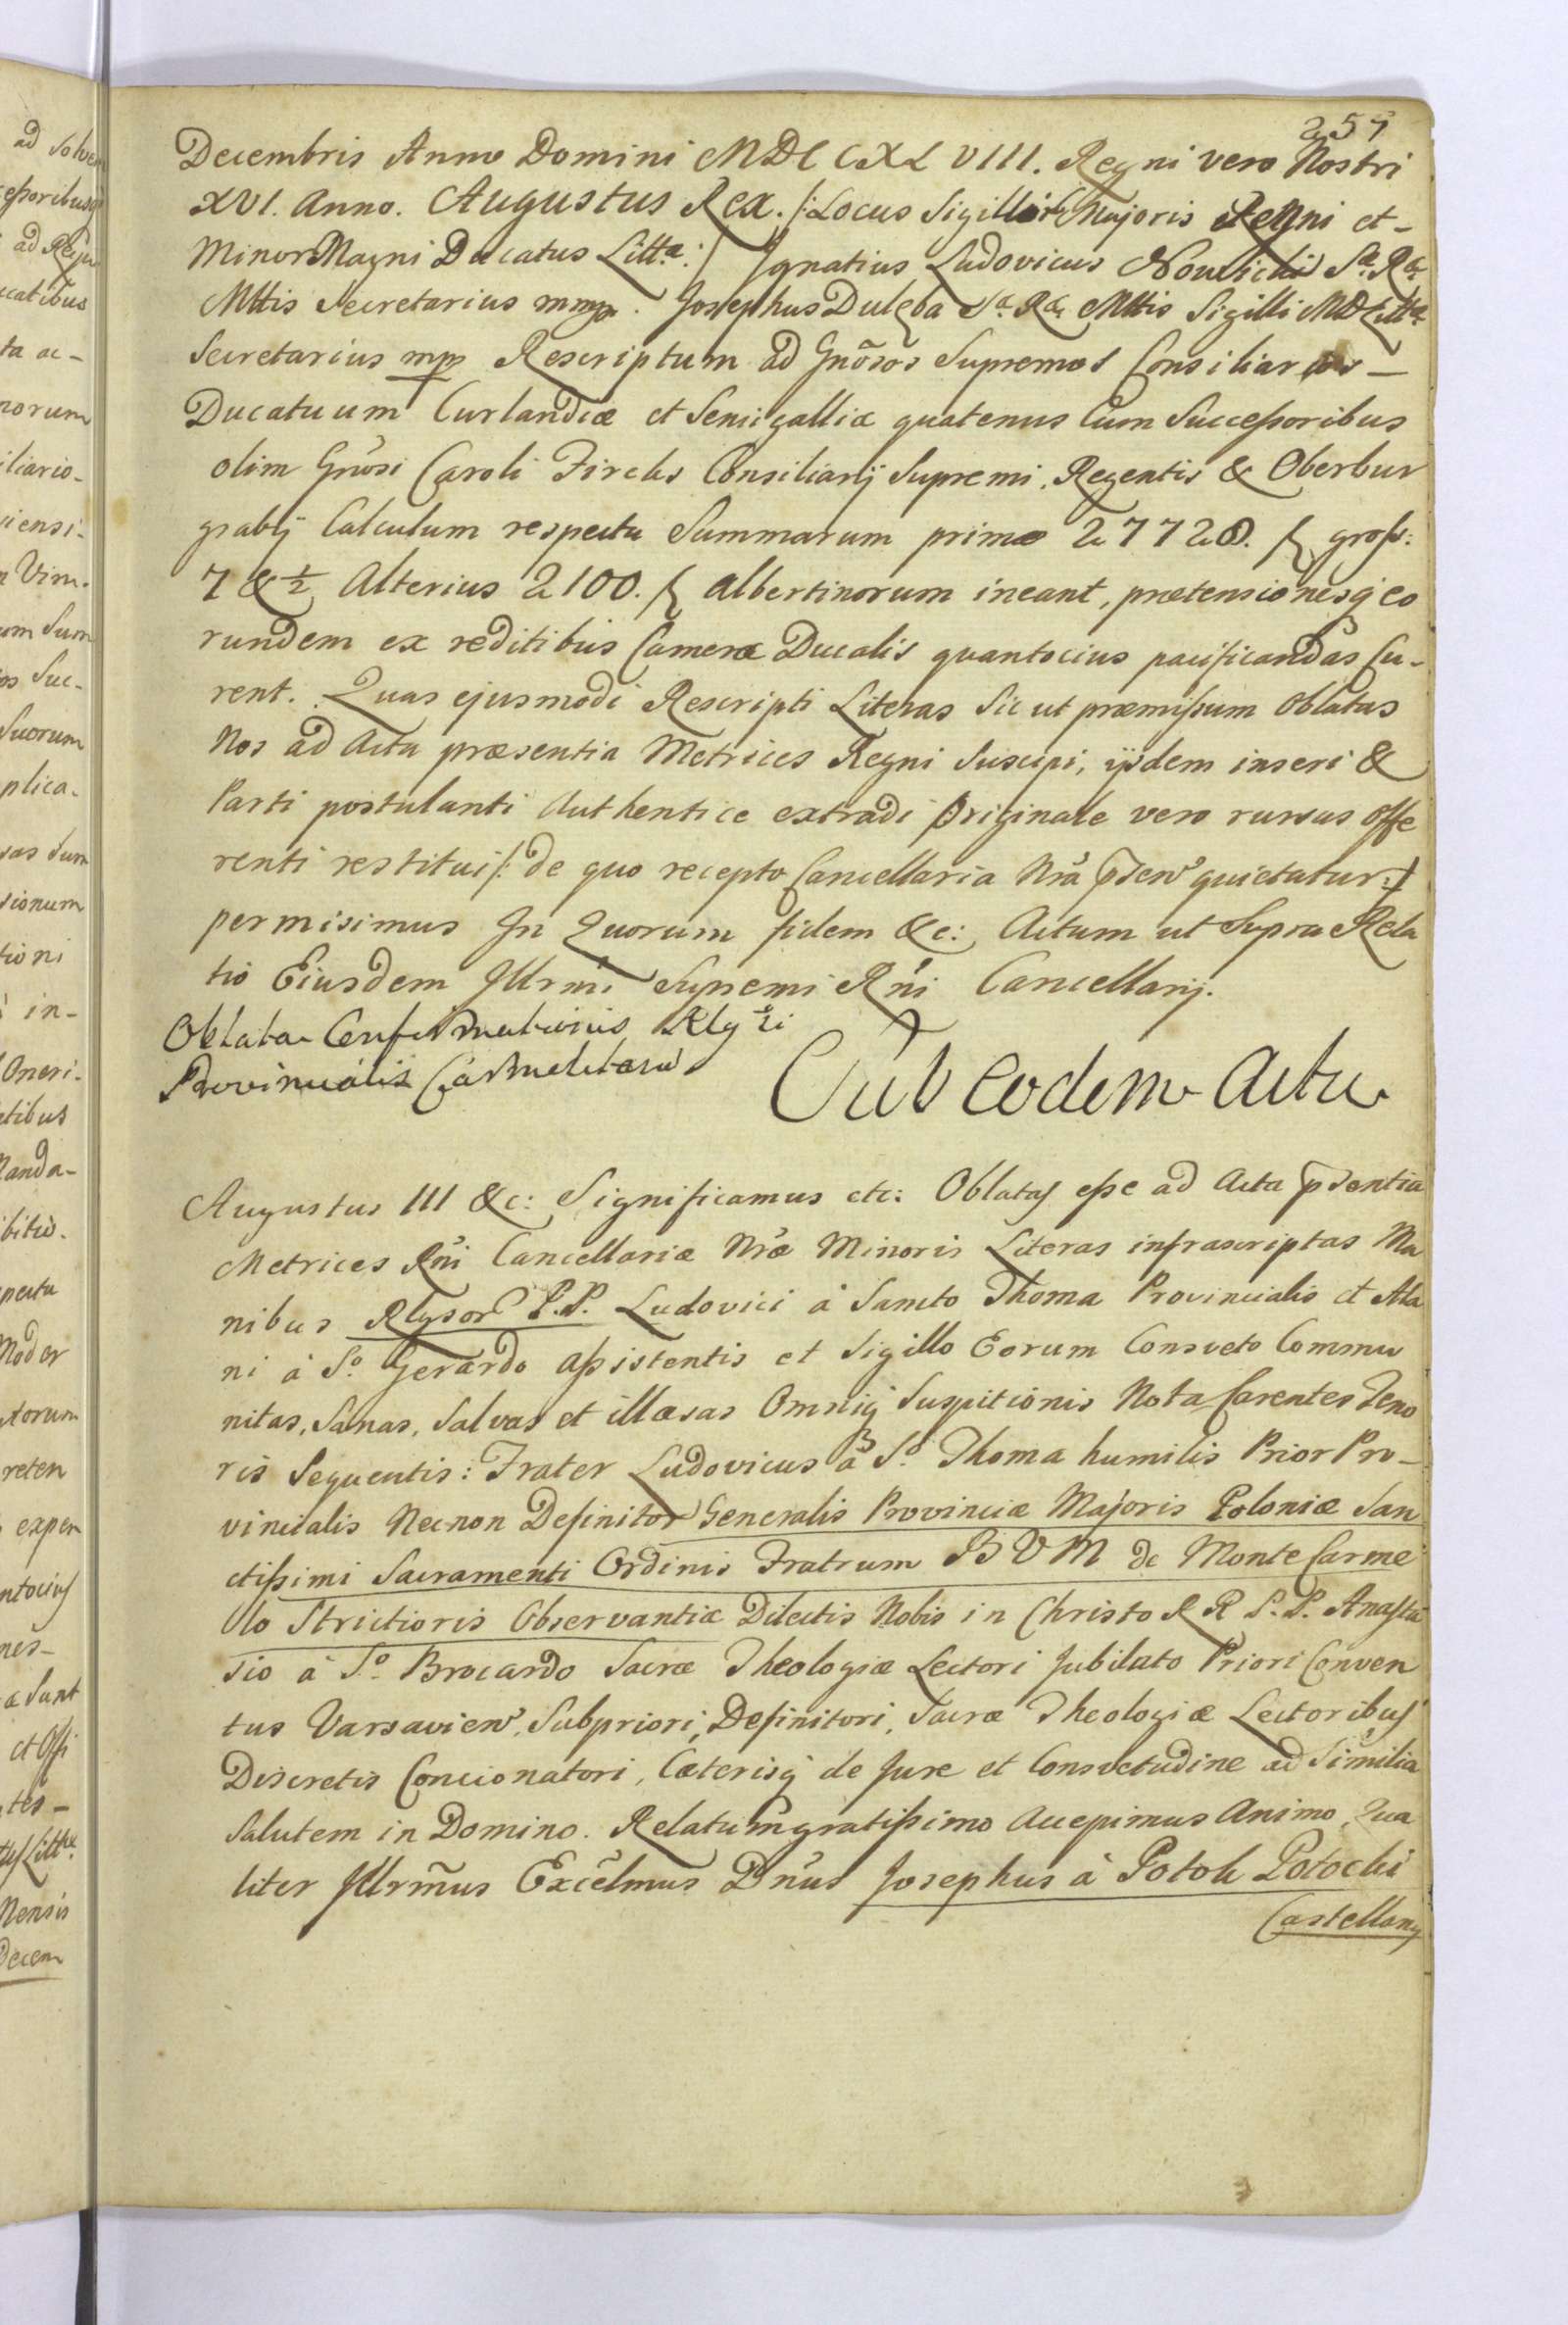 257
Decembris Anno Domini MDCCXLVIII. Regni vero Nostri
XVI. Anno. Augustus Rex. /: Locus Sigilli Majoris Regni et -
Minor Magni Ducatus Litt.æ :/ Ignatius Ludovicus Nowicki S.æ R.æ
Mttis Secretarius mmp. Josephus Dulęba S.æ R.æ Mttis Sigilli MD Litt.æ
Secretarius mp Rescriptum ad Gnõsos Supremos Consiliarios -
Ducatuum Curlandiæ et Semigalliæ quatenus Cum Successoribus
olim Gnõsi Caroli Fircks Consiliarij Supremi, Regentis & Oberbur
grabij Calculum respectu Summarum primæ 27728. f gross:
7 & 1/2 Alterius 2100. f albertinorum ineant, prætensionesq eo
rundem ex reditibus Cameræ Ducalis quantocius pacificandas Cu-
rent. Quas ejusmodi Rescripti Literas Sic ut præmissum Oblatas
Nos ad Acta præsentia Metrices Regni Suscipi, ijsdem inseri &
Parti postulanti Authentice extradi Originale vero rursus offe
renti restitui /: de quo recepto Cancellaria Nrã pñsen quietatur :/
permisimus In Quorum fidem &c: Actum ut Supra Rela
tio Eiusdem Illrmi Supremi Rni Cancellarij.
Oblata Confirmationis Rlgsi
Provincialis Carmelitarũ
Sub Eodem Actu
Augustus III &c: Significamus etc: Oblatas esse ad Acta pñsentia
Metrices Rñi Cancellariæ Nrǣ Minoris Literas infrascriptas Ma
nibus Rlgsor P.P. Ludovici à Sancto Thoma Provincialis et Ala
ni à S.o Gerardo assistentis et Sigillo Eorum Consveto Commu
nitas, Sanas, Salvas et illæsas Omniq Suspitionis Nota Carentes Teno
ris Sequentis: Frater Ludovicus à S.o Thoma humilis Prior Pro-
vincialis Necnon Definitor Generalis Provinciæ Majoris Poloniæ San
ctissimi Sacramenti Ordinis Fratrum B V M de Monte Carme
lo Strictioris Observantiæ Dilectis Nobis in Christo R R P. P. Anasta
sio à S.o Brocardo Sacræ Theologiæ Lectori Jubilato Priori Conven
tus Varsavien, Subpriori, Definitori, Sacræ Theologiæ Lectoribus
Discretis Concionatori, Cæterisq de Jure et Consvetudine ad Similia
Salutem in Domino. Relatum gratissimo Accepimus Animo, Qua
liter Illrm̃us Excẽlmus Dñus Josephus à Potok Potocki
Castellany